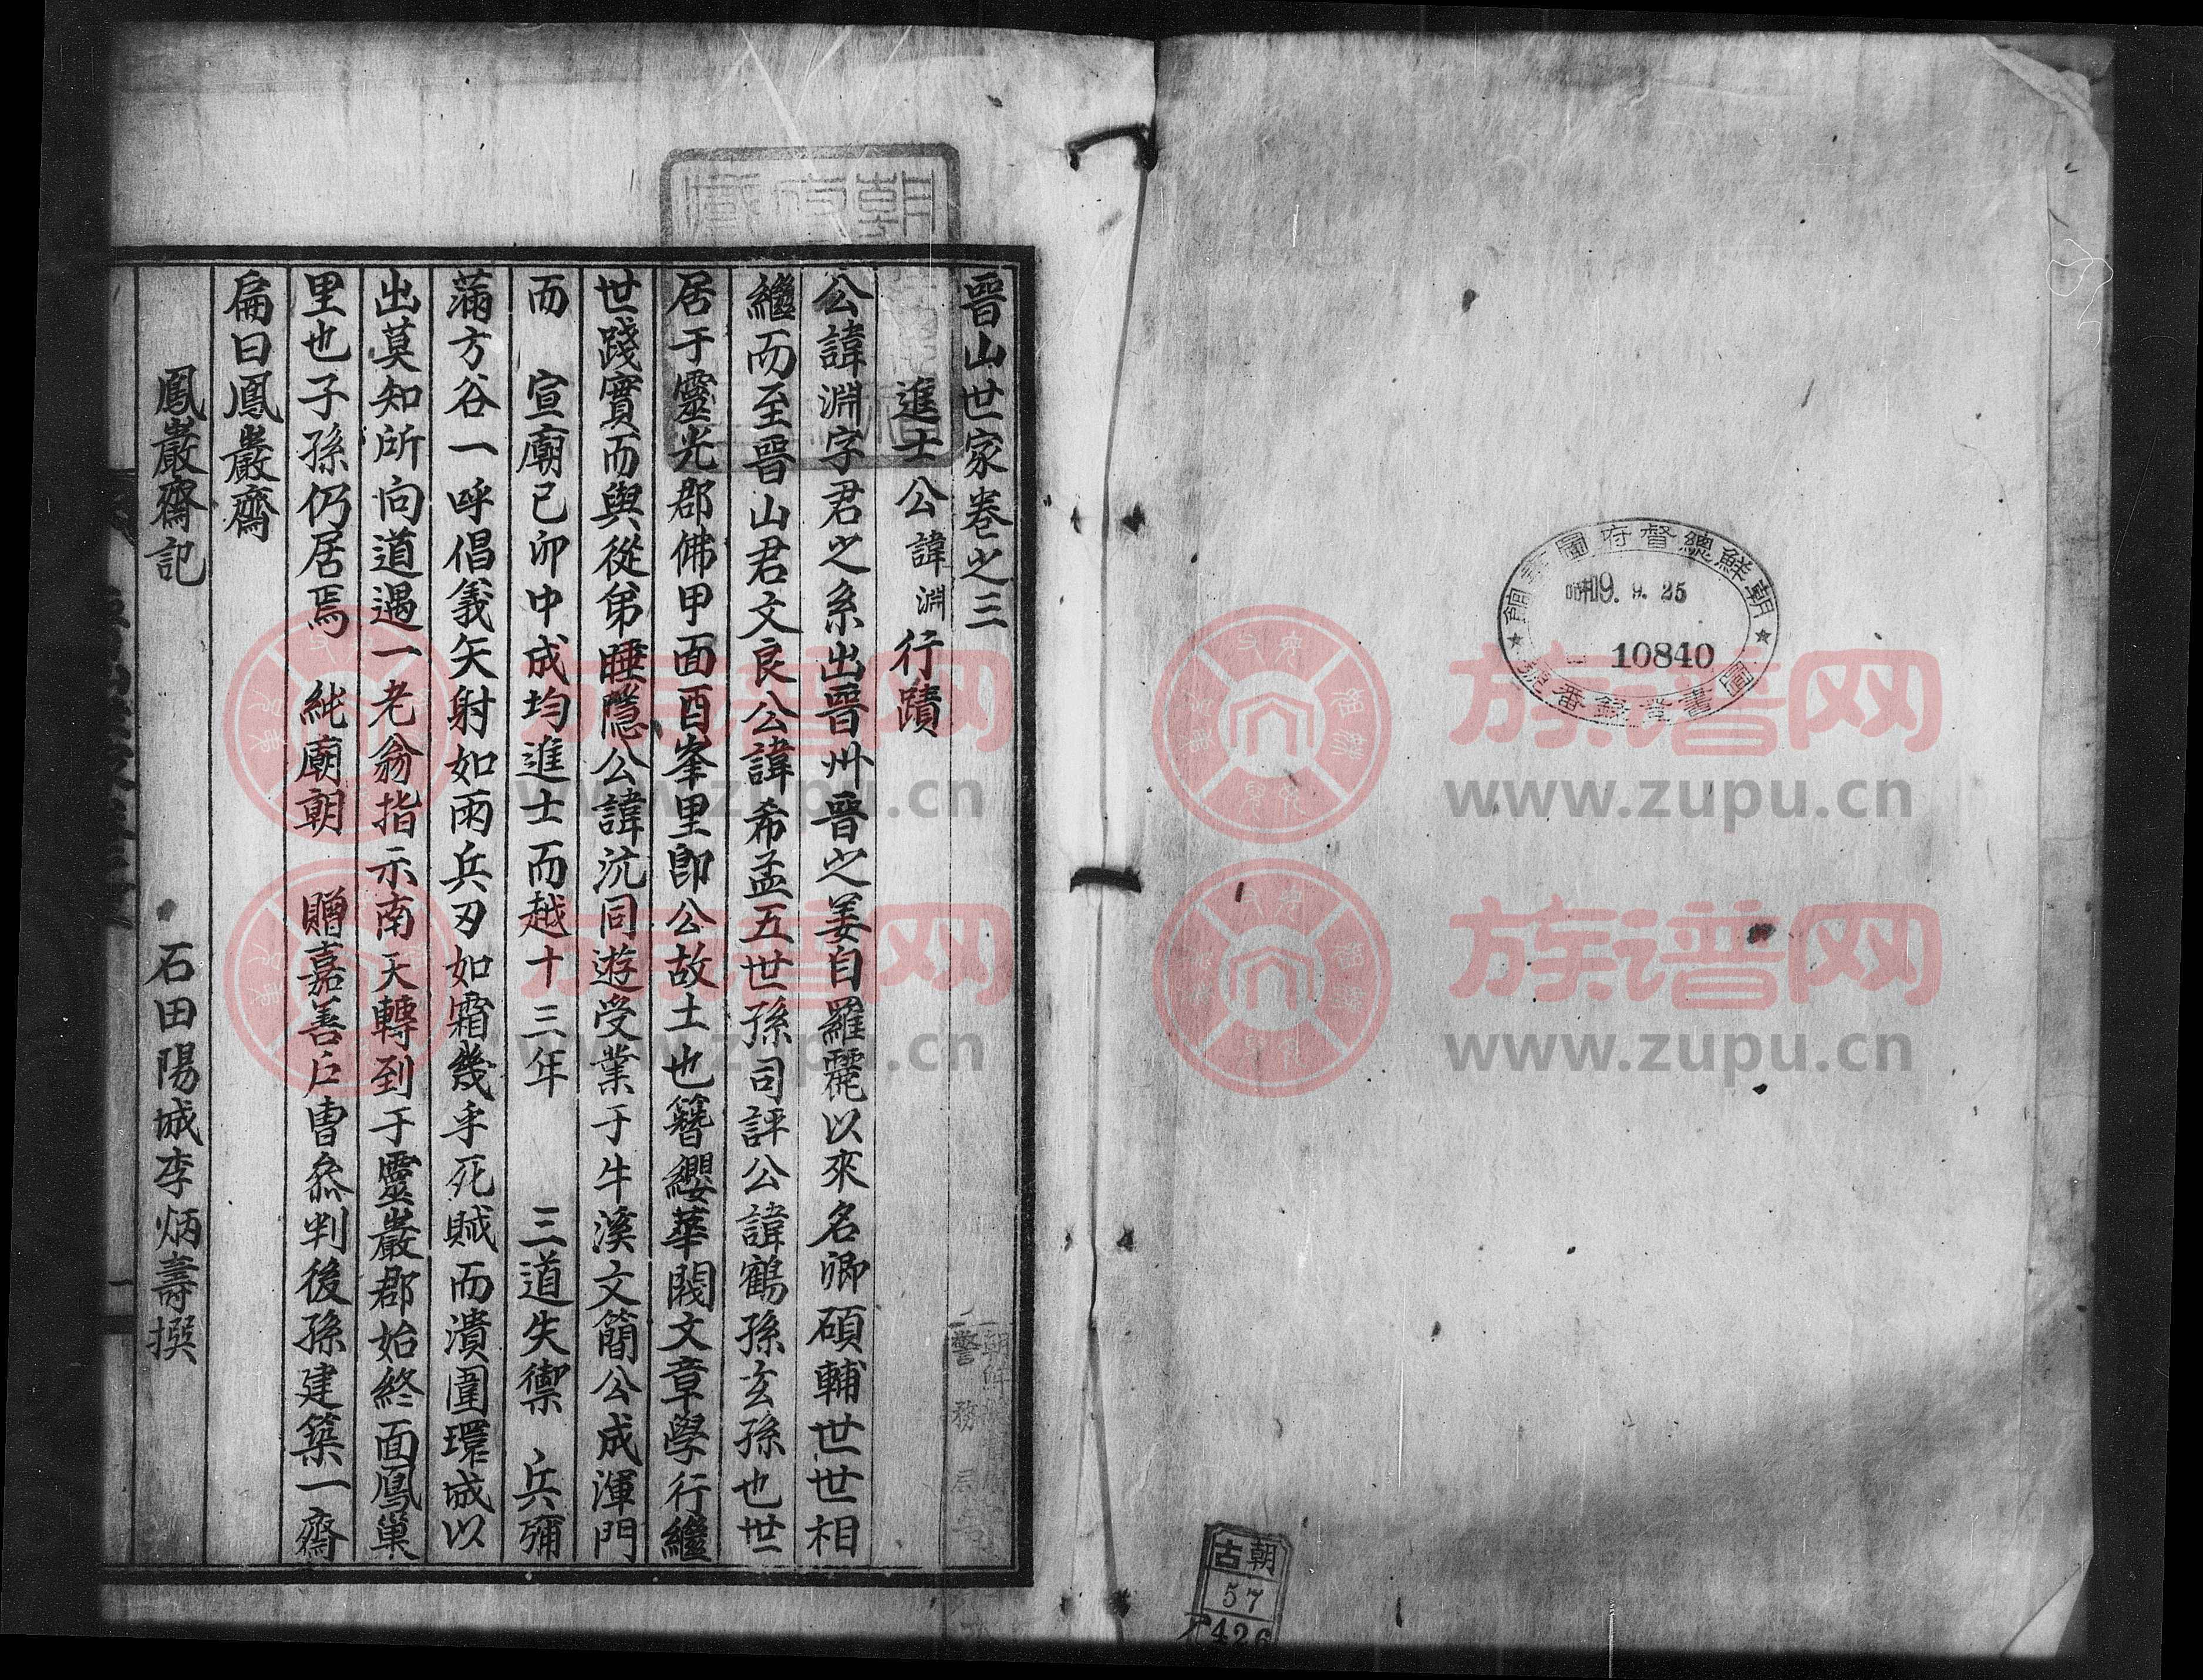 朝鮮總督府圖書館
昭和9.9.25
10840
圖書登錄番號
古朝
57
晉山世家卷之三
進士公諱淵行蹟
公諱淵字君之系出晉州晉之姜自羅麗以來名卿碩輔世世相
繼而至晉山君文良公諱希孟五世孫司評公諱鶴孫玄孫也世
居于靈光郡佛甲面酉峯里卽公故土也簪纓華閥文章學行繼
世踐實而與從弟睡隱公諱沆同遊受業于牛溪文簡公成渾門
而 宣廟己卯中成均進士而越十三年 三道失禦 兵彌
滿方谷一呼倡義矢射如雨兵刃如霜幾乎死賊而潰圍環城以
出莫知所向道遇一老翁指示南天轉到于靈巖郡始終面鳳巢
里也子孫仍居焉 純廟朝 贈嘉善戶曺叅判後孫建築一齋
扁曰鳳巖齋
鳳巖齋記 石田陽城李炳壽撰
一
族谱网
www.zupu.cn
族谱网
www.zupu.cn
族谱网
www.zupu.cn
族谱网
www.zupu.cn